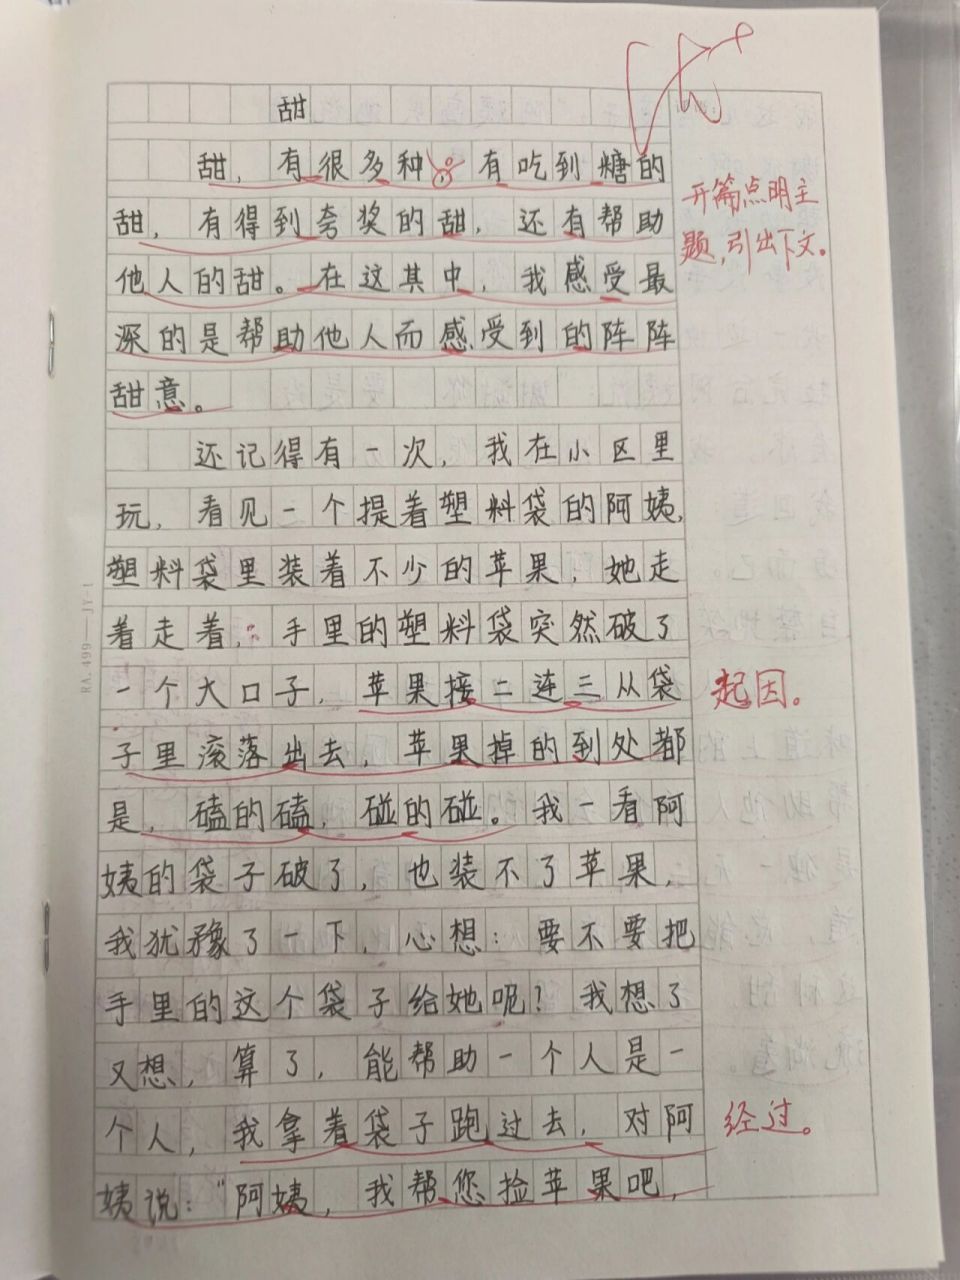 优+
甜
甜，有很多种，有吃到糖的
甜，有得到夸奖的甜，还有帮助
他人的甜。在这其中，我感受最
深的是帮助他人而感受到的阵阵
甜意。
开篇点明主
题，引出下文。
还记得有一次，我在小区里
玩，看见一个提着塑料袋的阿姨，
塑料袋里装着不少的苹果，她走
着走着，手里的塑料袋突然破了
一个大口子，苹果接二连三从袋
起因。
子里滚落出去，苹果掉的到处都
是，磕的磕，碰的碰。我一看阿
姨的袋子破了，也装不了苹果，
我犹豫了一下，心想：要不要把
手里的这个袋子给她呢？我想了
又想，算了，能帮助一个人是一
个人，我拿着袋子跑过去，对阿
经过。
姨说：“阿姨，我帮您捡苹果吧，
RA.499—JY-1